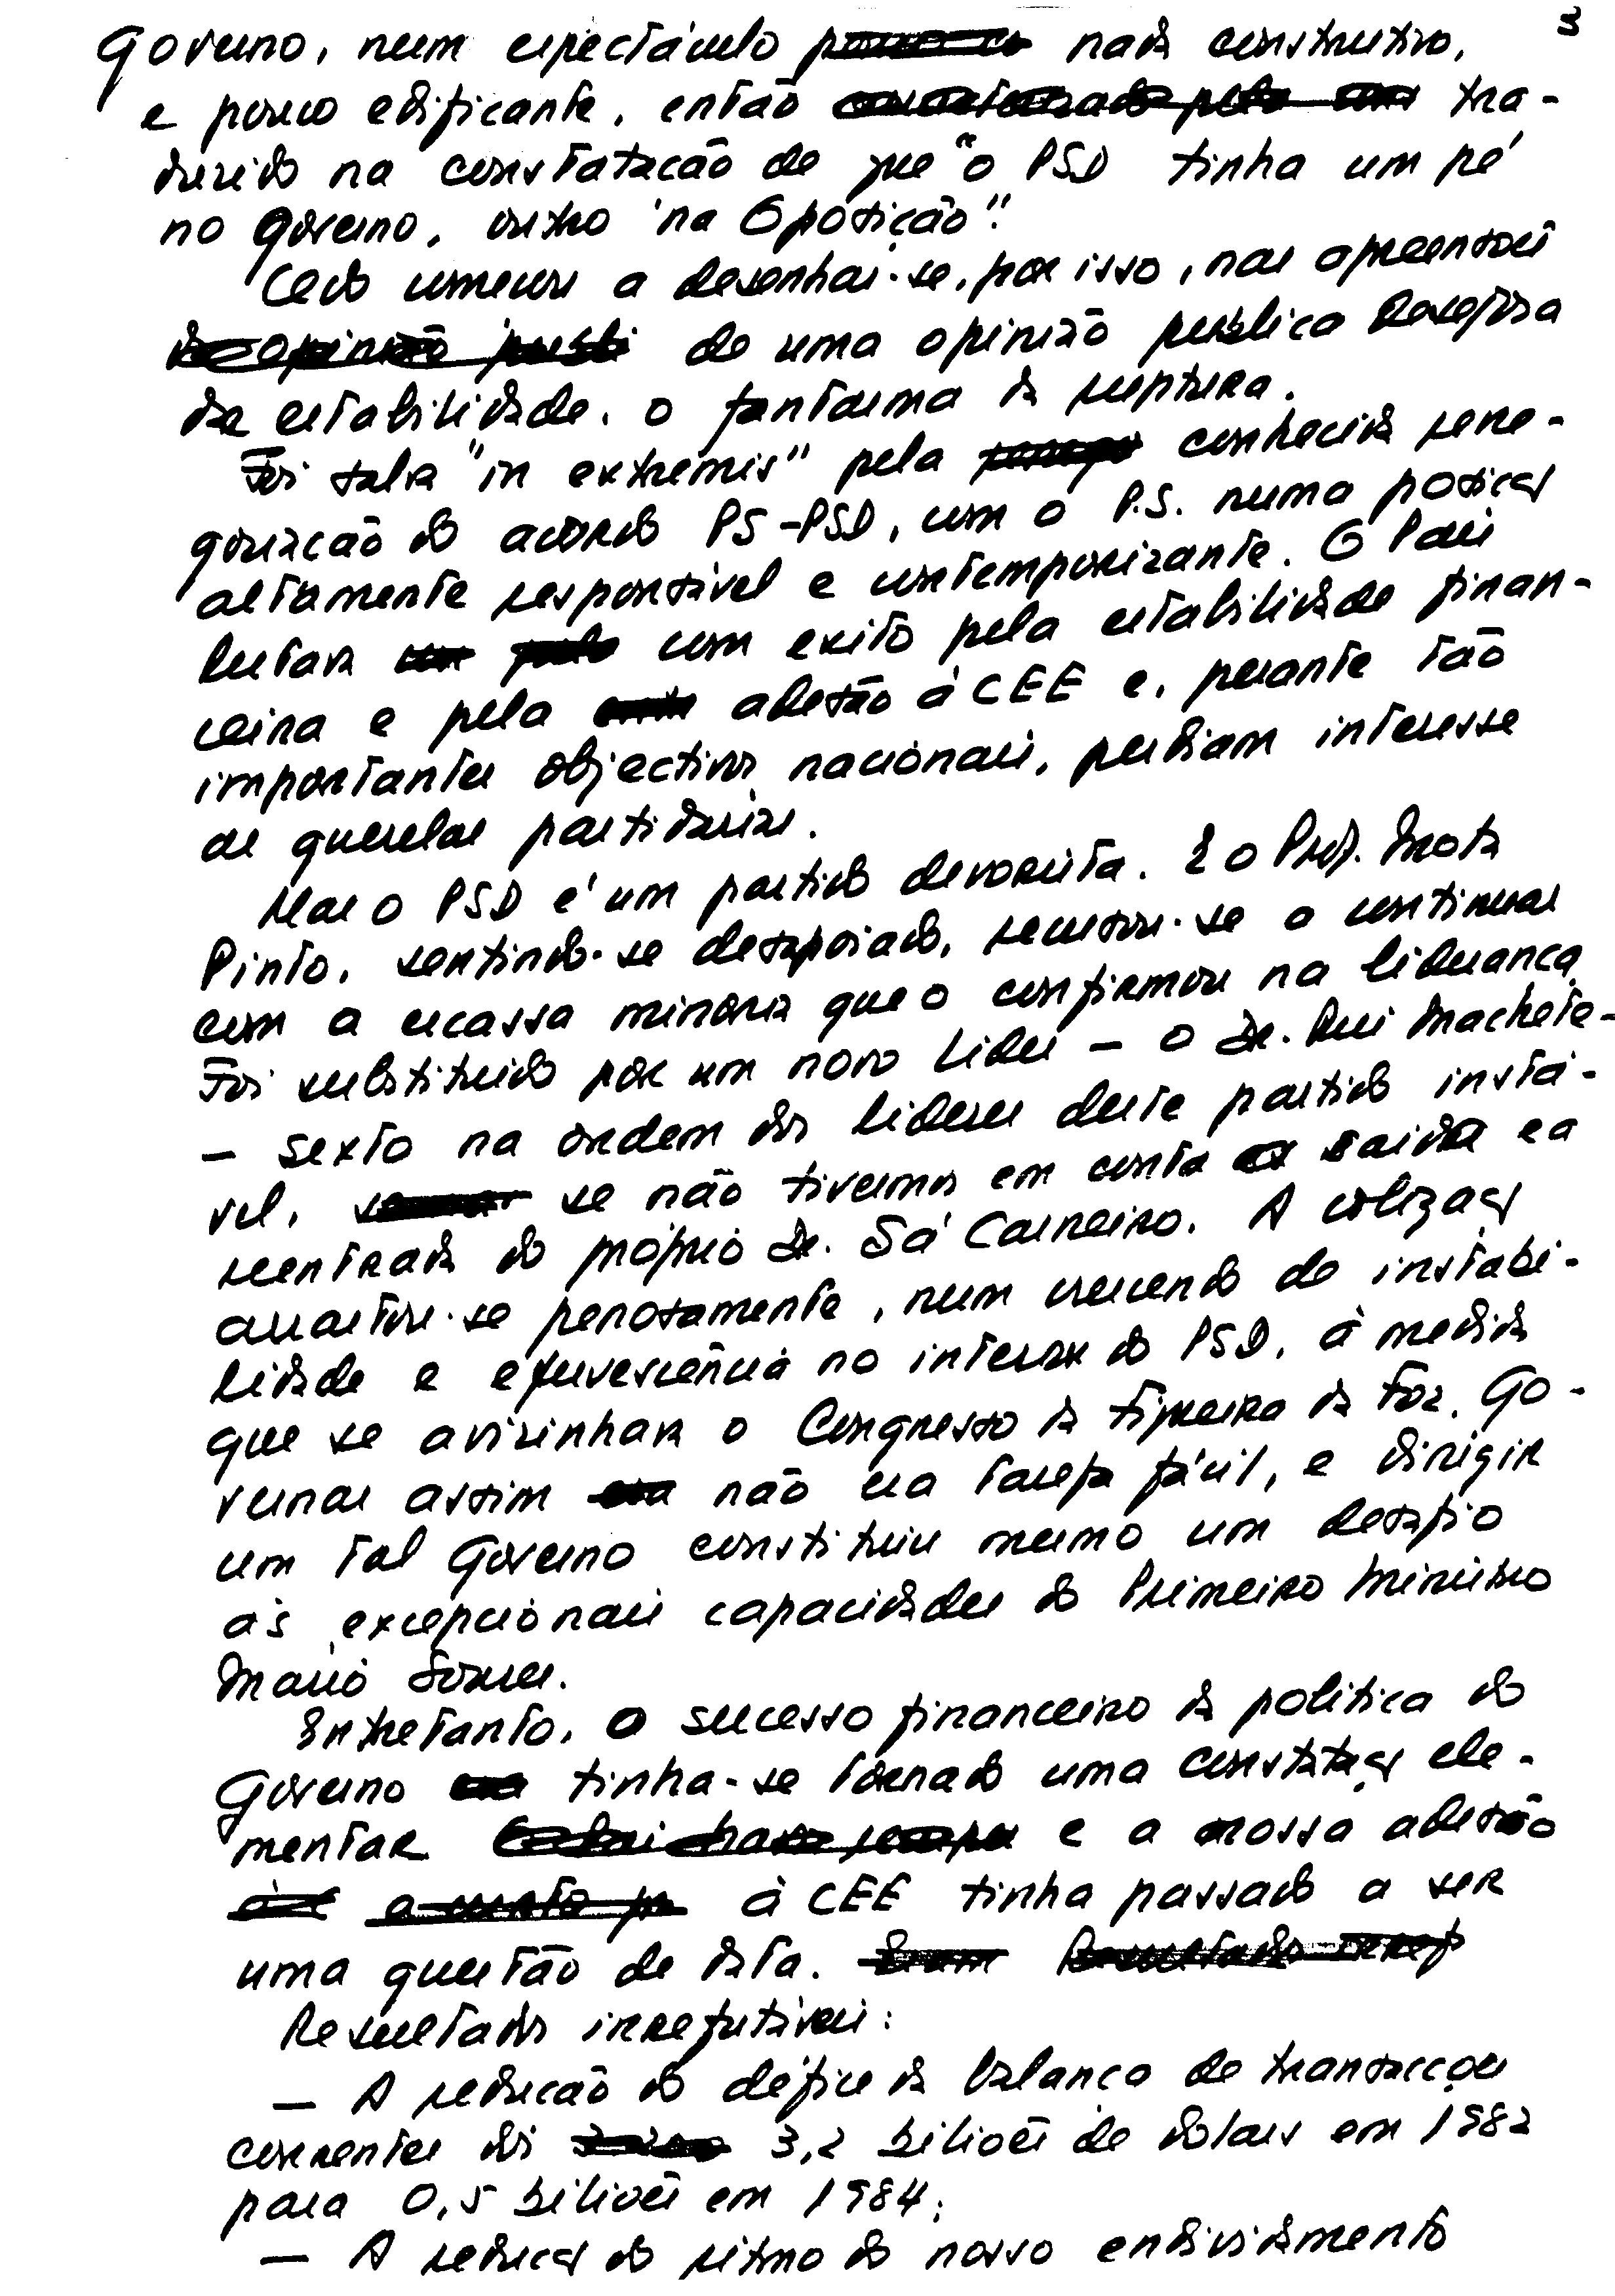 3
Governo, num espectáculo nada construtivo,
e pouco edificante, então tra-
duzido na constatação de que "o PSD tinha um pé
no Governo, outro na Oposição".
Cedo começou a desenhar-se, por isso, nas apreensões
de uma opinião pública desejosa
da estabilidade, o fantasma da ruptura.
Foi salva "in extremis" pela conhecida rene-
gociação do acordo PS-PSD, com o P.S. numa posição
altamente responsável e contemporizante. O País
lutava com exito pela estabilidade finan-
ceira e pela adesão à CEE e, perante tão
importantes objectivos nacionais, perdiam interesse
as querelas partidárias.
Mas o PSD é um partido devorista. E o Prof. Mota
Pinto, sentindo-se desapoiado, recusou-se a continuar
com a escassa minoria que o confirmou na liderança.
Foi substituido por um novo Lider - o Dr. Rui Machete -
- sexto na ordem dos lideres deste partido instá-
vel, se não tivermos em conta a saida e a
reentrada do próprio Dr. Sá Carneiro. A coligação
arrastou-se penosamente, num crescendo de instabi-
lidade e efervescência no interior do PSD, à medida
que se avizinhava o Congresso da Figueira da Foz. Go-
vernar assim não era tarefa fácil, e dirigir
um tal Governo constituiu mesmo um desafio
às excepcionais capacidades do Primeiro Ministro
Mário Soares.
Entretanto, o sucesso financeiro da politica do
Governo tinha-se tornado uma constatação ele-
mentar e a nossa adesão
à CEE tinha passado a ser
uma questão de data.
Resultados irrefutáveis:
- A redução do défice da balança de transacções
correntes dos 3,2 biliões de dolars em 1982
para 0,5 biliões em 1984;
- A redução do ritmo do nosso endividamento